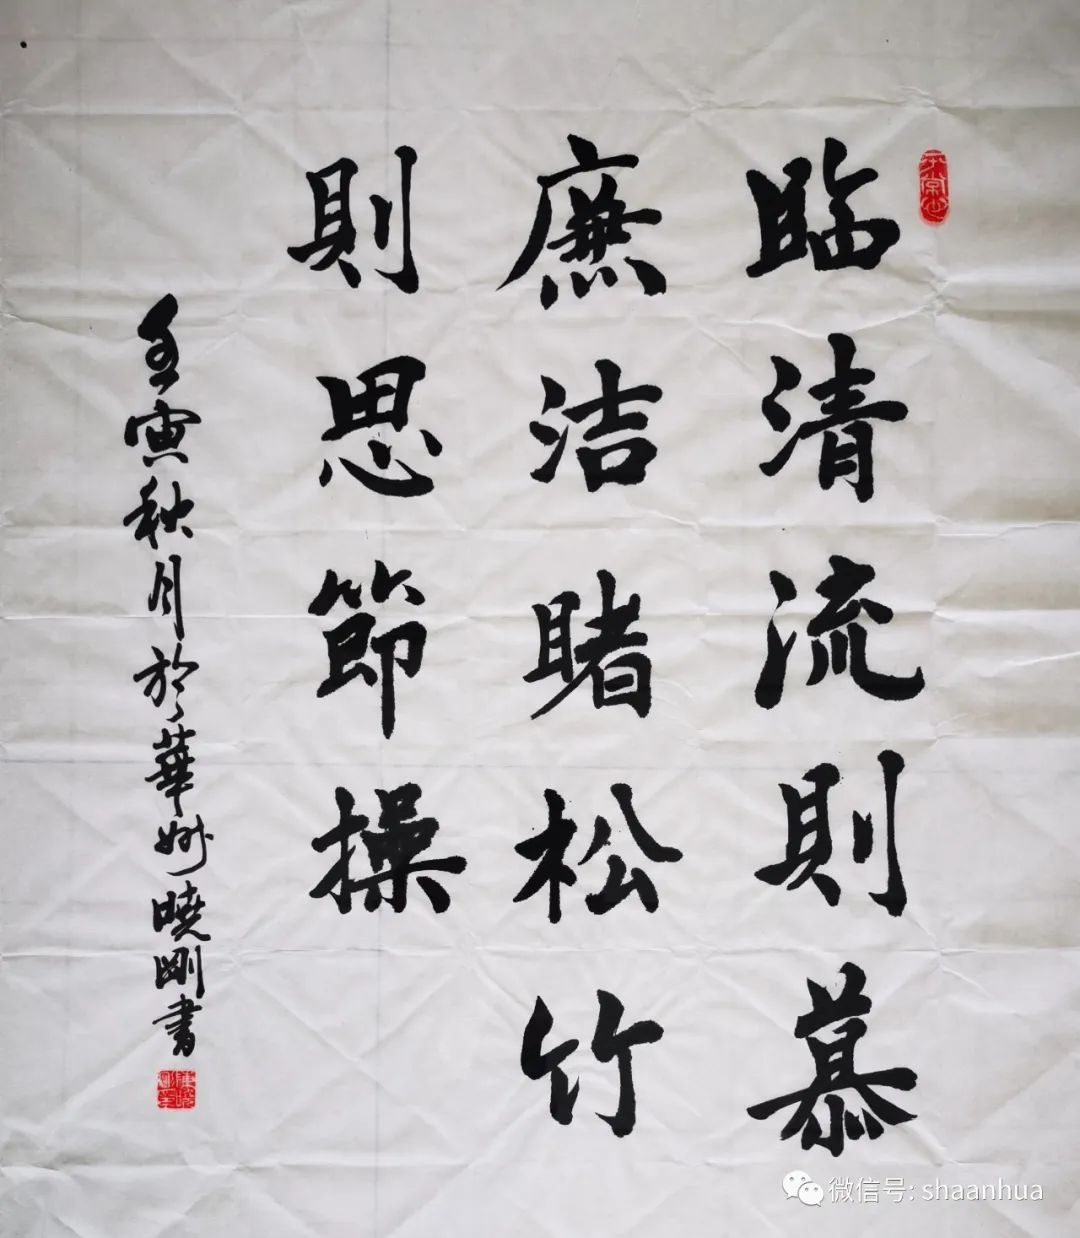 临清流則慕
廉洁睹松竹
則思節操
壬寅秋月於華州曉剛書
微信号: shaanhua